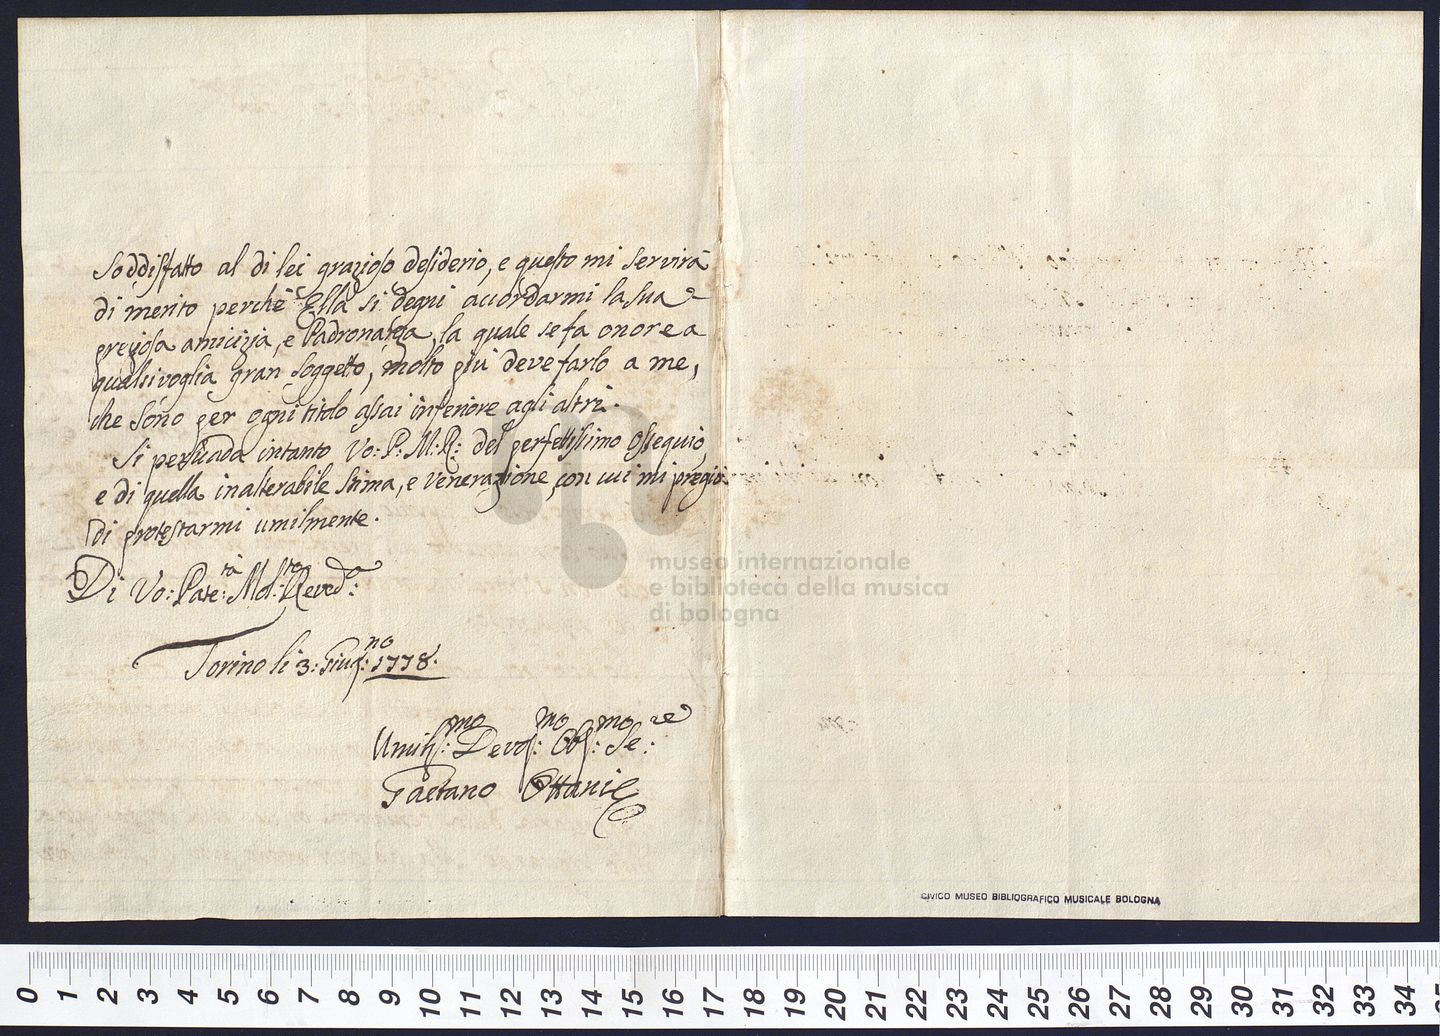 Soddisfatto al di lei grazioso desiderio, e questo mi servirà
di merito perchè Ella si degni accordarmi la sua
preziosa amicizia, e Padronanza, la quale se fa onore a
qualsivoglia gran Soggetto, molto più deve farlo a me,
che sono per ogni titolo assai inferiore agli altri.
Si persuada intanto Vo: P: M: R: del perfettissimo Ossequio,
e di quella inalterabile stima, e venerazione, con cui mi pregio
di protestarmi umilmente.
Di Vo: Pate:tà Mol:to Reved:a
Torino li 3: Giug:no 1778.
Umilis:mo Devos:mo Obs:mo Se:re
Gaetano Ottani
museo internazionale
e biblioteca della musica
di bologna
CIVICO MUSEO BIBLIOGRAFICO MUSICALE BOLOGNA
0 1 2 3 4 5 6 7 8 9 10 11 12 13 14 15 16 17 18 19 20 21 22 23 24 25 26 27 28 29 30 31 32 33 34